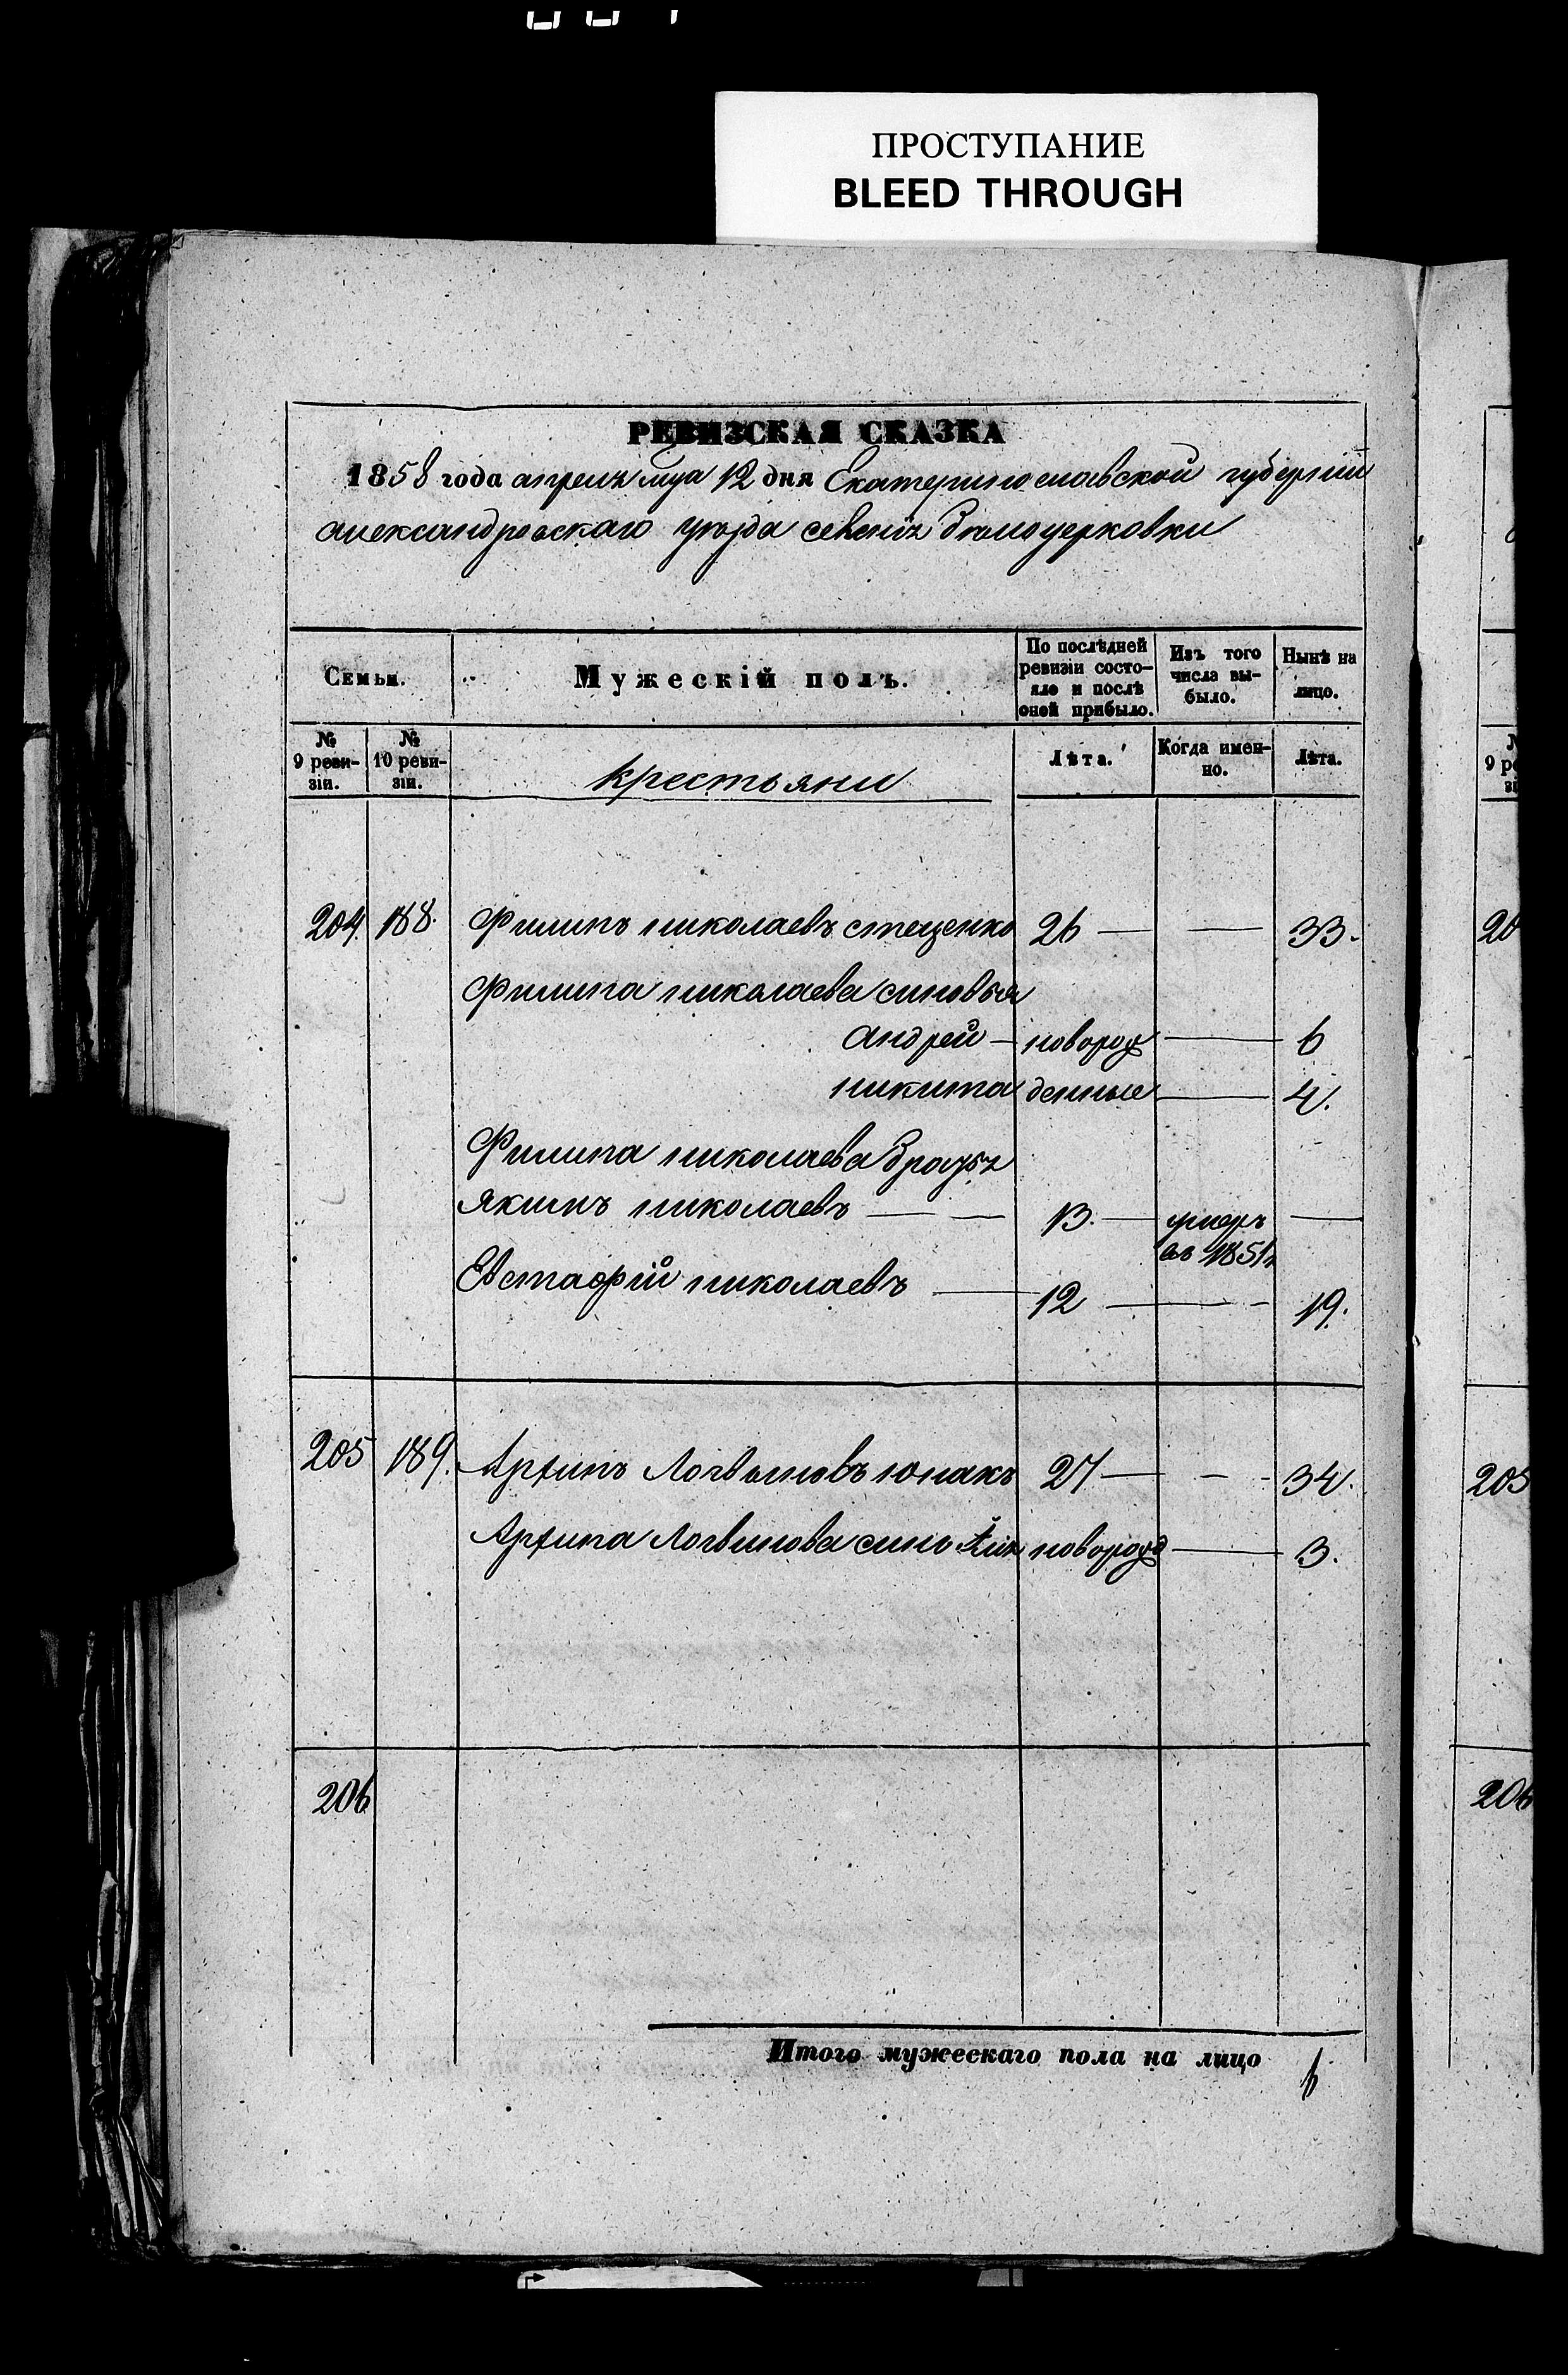 ПРОСТУПАНИЕ
BLEED THROUGH
РЕВИЗСКАЯ СКАЗКА
1858 года апреля мца 12 дня Екатеринославской губернии
александровскаго уезда селения Белоцерковки
Семьи.
Мужескій полъ.
По послѣдней ревизіи состо-
яло и послѣ
оной прибыло.
Изъ того
числа вы-
было.
Нынѣ на
лицо.
№
9 реви-
зіи.
№
10 реви-
зіи.
крестьяни
Лѣта.
Когда имен-
но.
Лѣта.
204. 188. Филипъ николаевъ стеценко 26 — — 33.
Филипа николаева синовья
андрей — новорож — 6
никита денные — 4.
Филипа николаева братья
якимъ николаевъ — — 13. — умеръ —
въ 1851г
Евстафій николаевъ — 12 — — 19.
205 189. Архипъ Логвиновъ юнакъ 27 — — 34.
Архипа Логвинова синъ новорожд — 3.
206
Итого мужескаго пола на лицо 6
20
205
206